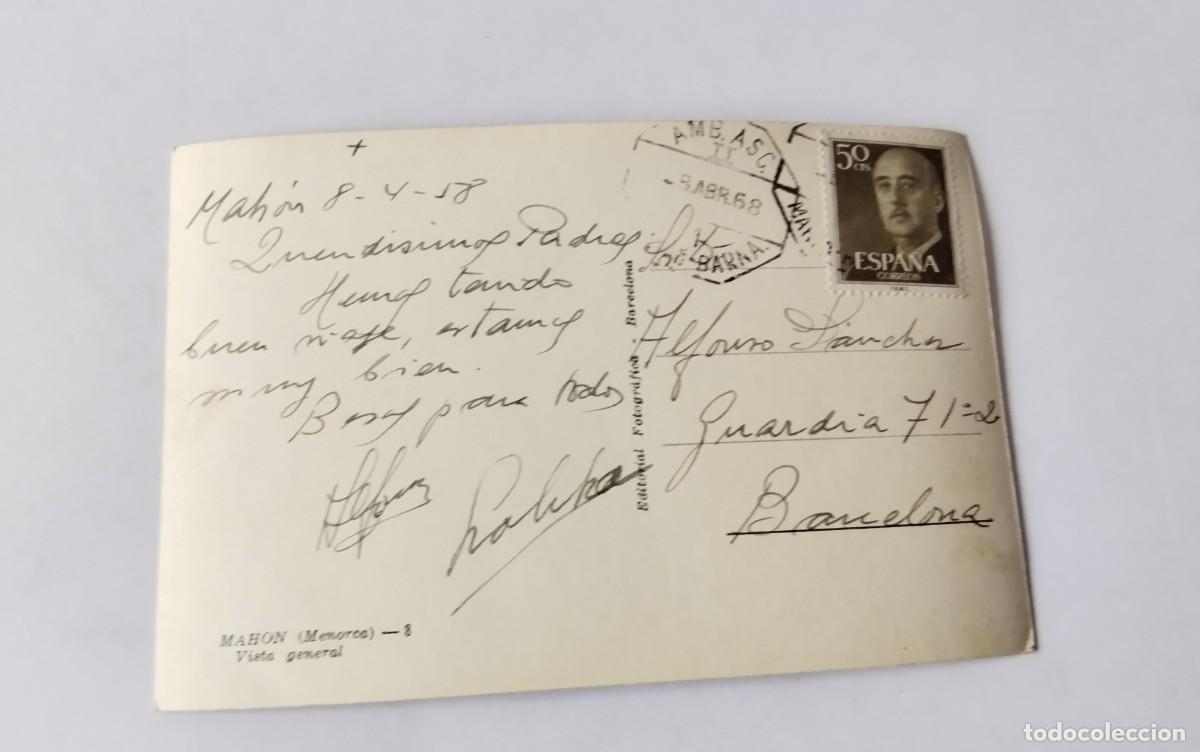 +
Mahón 8-4-58
Queridisimos Padres:
Hemos tenido
buen viaje, estamos
muy bien.
Besos para todos
Alfonso
Lolita
MAHON (Menorca) — 8
Vista general
Editorial Fotográfica - Barcelona
AMB. ASC.
II
-8 ABR. 68
BARNA.
50 CTS
ESPAÑA
CORREOS
Alfonso Sánchez
Guardia 7 1º-2
Barcelona
todocoleccion